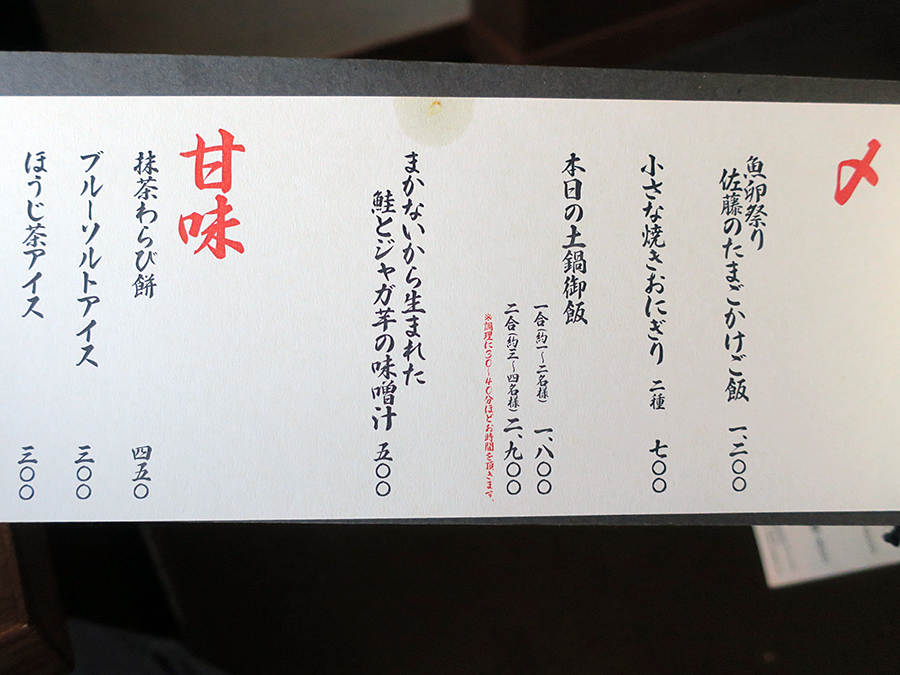 〆
魚卵祭り
佐藤のたまごかけご飯 一、二〇〇
小さな焼きおにぎり 二種 七〇〇
本日の土鍋御飯
一合(約一〜二名様) 一、八〇〇
二合(約三〜四名様) 二、九〇〇
※調理に30〜40分ほどお時間を頂きます。
まかないから生まれた
鮭とジャガ芋の味噌汁 五〇〇
甘味
抹茶わらび餅 四五〇
ブルーソルトアイス 三〇〇
ほうじ茶アイス 三〇〇